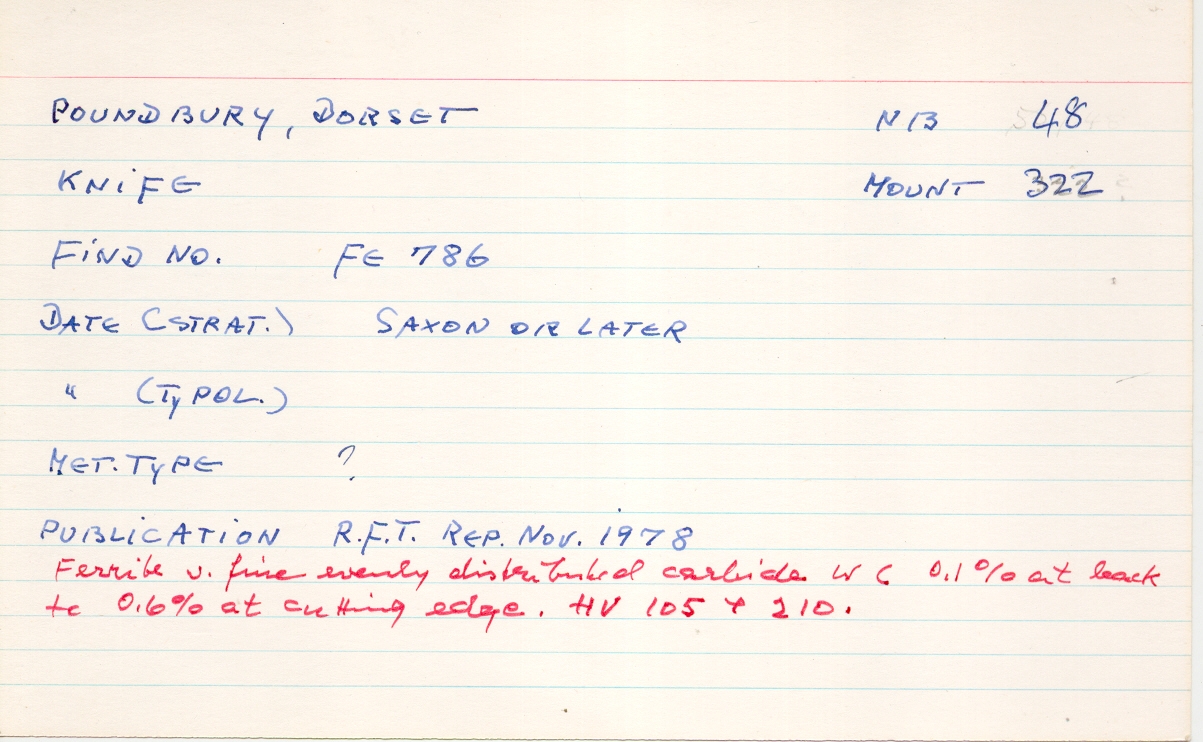 POUNDBURY, DORSET NB 48
KNIFE MOUNT 322
FIND NO. FE 786
DATE (STRAT.) SAXON OR LATER
" (TYPOL.)
MET. TYPE ?
PUBLICATION R.F.T. REP. NOV. 1978
Ferrite v. fine evenly distributed carbide C 0.1% at back
to 0.6% at cutting edge. HV 105 + 210.